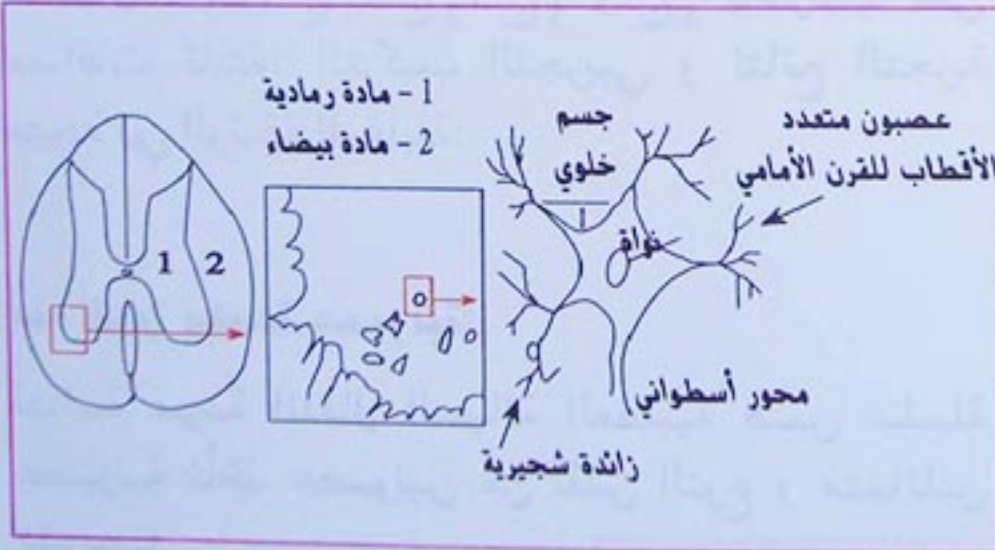 1 - مادة رمادية
2 - مادة بيضاء
جسم
خلوي
عصبون متعدد
الأقطاب للقرن الأمامي
1 2
نواة
محور أسطواني
زائدة شجيرية